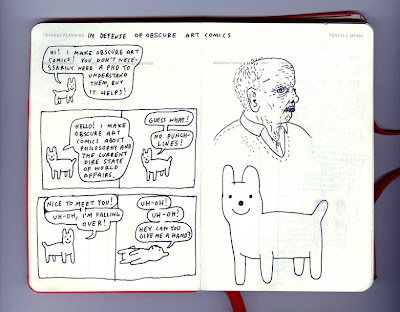 TRAVELS PLANNING
IN DEFENSE OF OBSCURE ART COMICS
TRAVELS MEMO
HI! I MAKE OBSCURE ART
COMICS! YOU DON'T NECE-
SSARILY NEED A PHD TO
UNDERSTAND
THEM, BUT
IT HELPS!
HELLO! I MAKE
OBSCURE ART
COMICS ABOUT
PHILOSOPHY AND
THE CURRENT
DIRE STATE
OF WORLD
AFFAIRS.
GUESS WHAT!
NO PUNCH-
LINES!
NICE TO MEET YOU!
UH-OH, I'M FALLING
OVER!
UH-OH!
UH-OH!
HEY CAN YOU
GIVE ME A HAND?